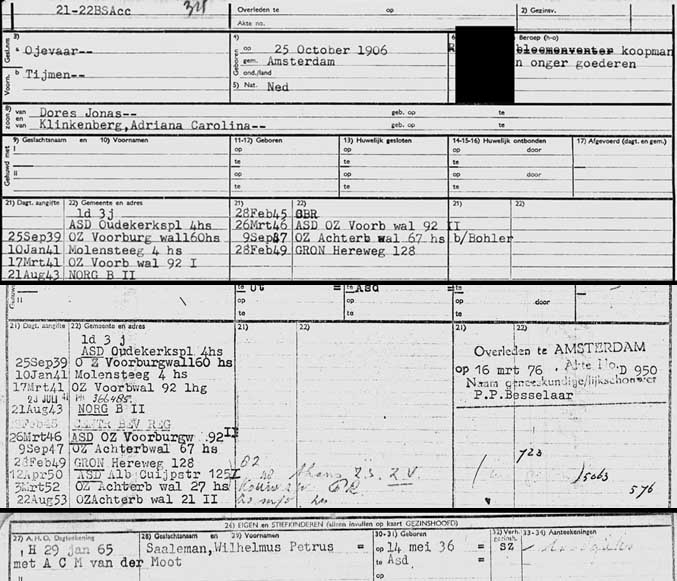 21-22BSAcc
Overleden te
op
2) Gezinsv.
Akte no.
3)
a Ojevaar--
4)
op 25 October 1906
gem. Amsterdam
ond./land
Beroep (h-o)
bloemenventer koopman
n onger goederen
Voorn. b Tijmen--
5) Nat. Ned
zoon van Dores Jonas-- geb. op te
en
van Klinkenberg,Adriana Carolina-- geb. op te
9) Geslachtsnaam en 10) Voornamen
11-12) Geboren
13) Huwelijk gesloten
14-15-16) Huwelijk ontbonden
17) Afgevoerd (dagt. en gem.)
Gehuwd met I
op op op door
te te te
II
op op op door
te te te
21) Dagt. aangifte 22) Gemeente en adres 21) 22) 21) 22)
ld 3j 28Feb45 GBR
ASD Oudekerkspl 4hs 26Mrt46 ASD OZ Voorb wal 92 II
25Sep39 OZ Voorburg wal160hs 9Sep87 OZ Achterb wal 67 hs b/Bohler
10Jan41 Molensteeg 4 hs 28Feb49 GRON Hereweg 128
17Mrt41 OZ Voorb wal 92 I
21Aug43 NORG B II
II
te Ut = te Asd =
op op op door
te te
21) Dagt. aangifte 22) Gemeente en adres 21) 22) 21) 22)
ld 3 j
ASD Oudekerkspl 4hs
25Sep39 O Z Voorburgwal160 hs
10Jan41 Molensteeg 4 hs
17Mrt41 OZ Voorbwal 92 1hg
Overleden te AMSTERDAM
op 16 mrt 76 . Akte No. D 950
Naam geneeskundige/lijkschouwer
P.P.Besselaar
366485
21Aug43 NORG B II
CENTR BEV REG
26Mrt46 ASD OZ Voorburgw 92II
9Sep47 OZ Achterbwal 67 hs
28Feb49 GRON Hereweg 128
12Apr50 ASD Alb Cuijpstr 125I
3Mrt52 OZ Achterb wal 27 hs
22Aug53 OZAchterb wal 21 II
723
5063
576
26) EIGEN en STIEFKINDEREN (alleen invullen op kaart GEZINSHOOFD)
27) A.H.O. Dagtekening 28) Geslachtsnaam en 29) Voornamen 30-31) Geboren 32) Verh. gezinsh. 33-34) Aantekeningen
I H 29 jan 65 Saaleman,Wilhelmus Petrus = op 14 mei 36 = SZ
met A C M van der Moot te Asd =
II op